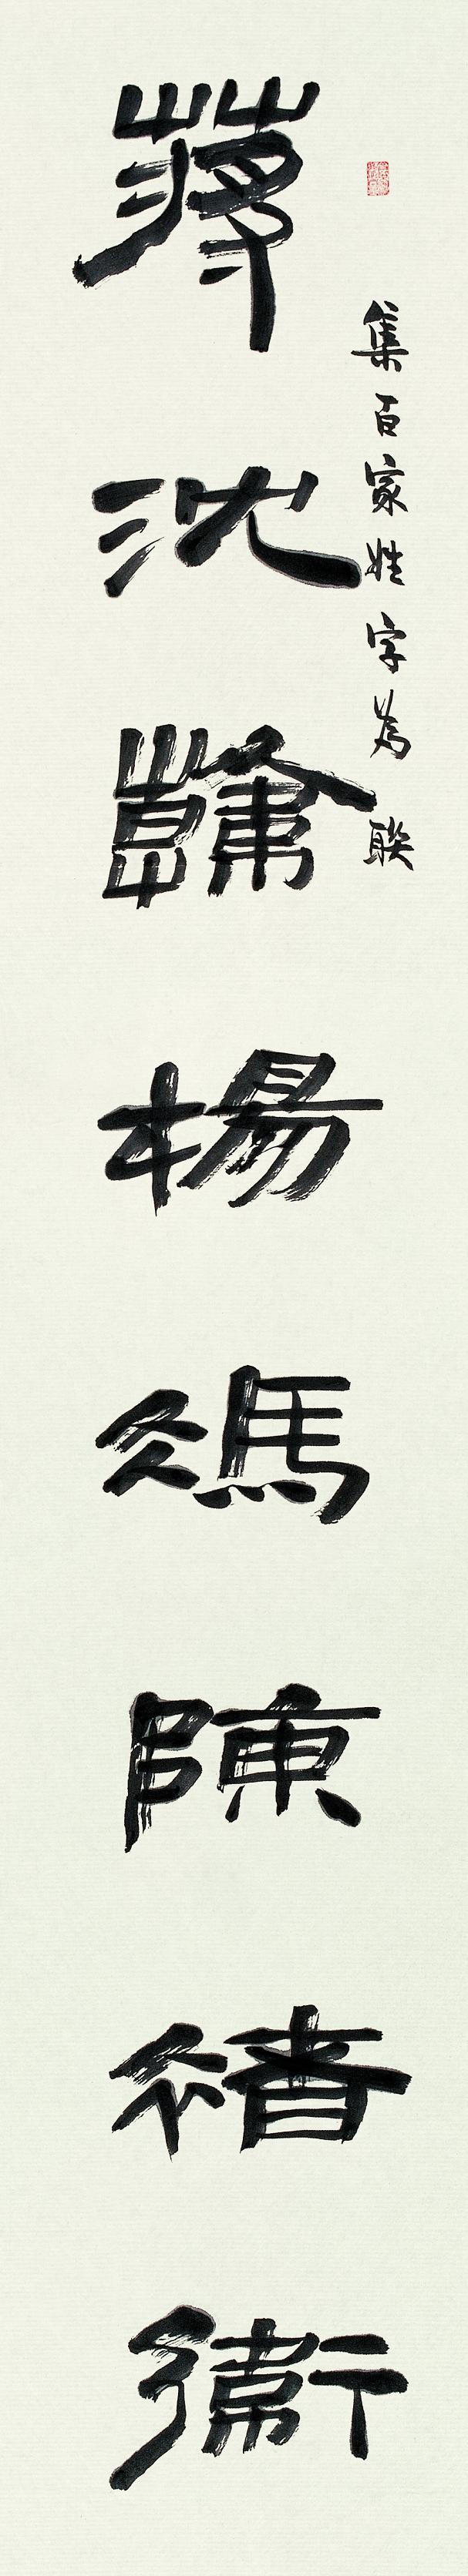 集百家姓字為聯
蔣沈韓楊馮陳褚衛